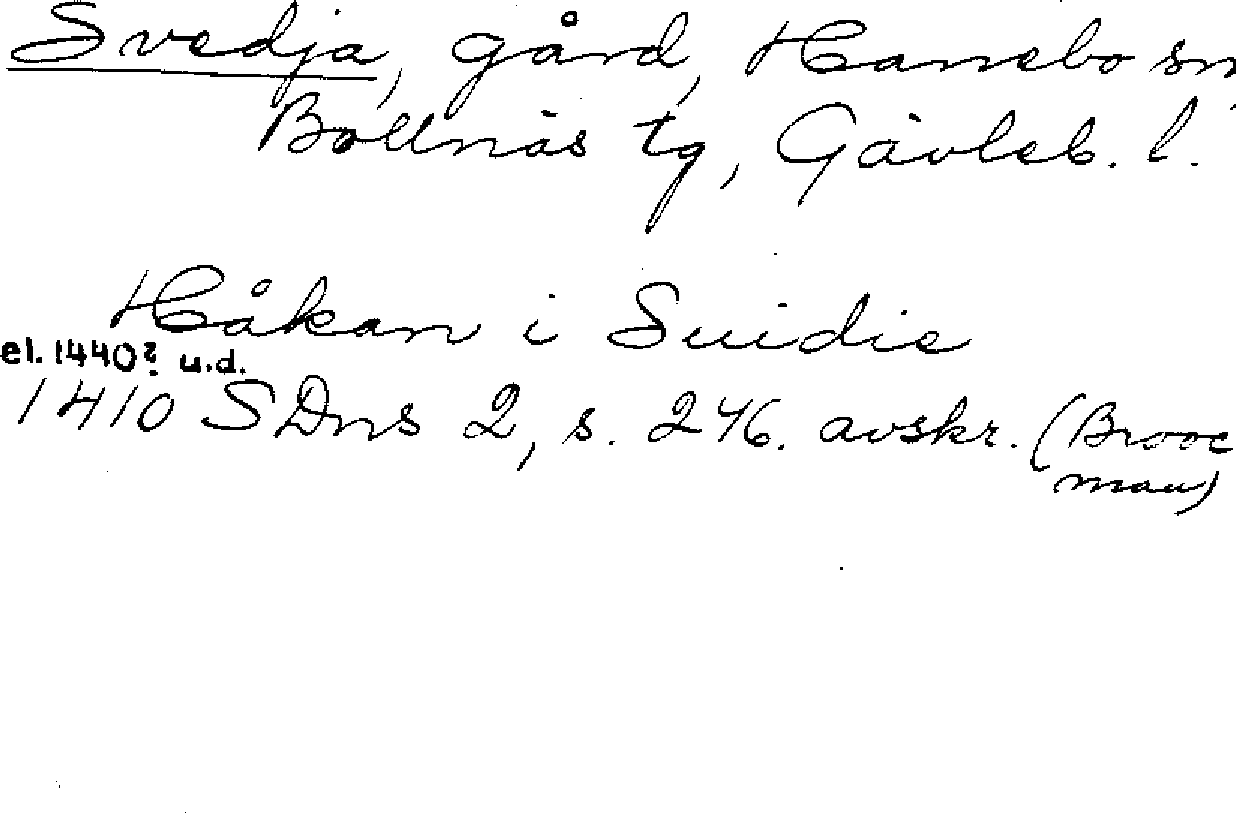 Svedja, gård, Hanebo sn,
Bollnäs tg, Gävleb. l.
Håkan i Suidie
el. 1440? u.d.
1410 SDns 2, s. 246. avskr. (Brooc
man)